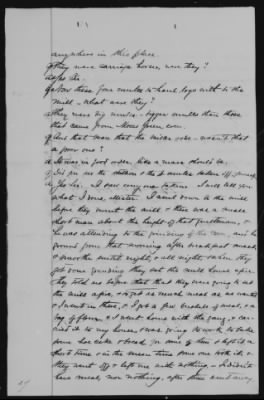 anywhere in this place.
Q They were carriage horses, were they?
A Yes Sir.
Q Now these four mules to haul logs with to the
mill - what were they?
A They were big mules - bigger mules than those
that came from
Q And that man that the mules - wasn't that
a poor one?
A It was in good order, like a mare should be.
Q Did you see the & the 4 mules taken off yourself
A Yes Sir. I saw every one taken. I will tell you
what I done, Master. I went down to the mill
before they burnt the mill & there was a small
short man about the height of that gentleman, &
he was attending to the grinding of the corn, and he
ground from that morning after breakfast
& smooth until night, & all night. when they
got done grinding they set the mill house afire.
They told us before that that they were going to set
the mill afire, & to get as much meal as we wanted
& I went in there, & I got a few bushels of meal, & a
bag of flour, & I went home with the gang, & car-
ried it to my house, & was going to work to bake
some hoe cake & bread for some of them & kept it a
short time & in the mean time some one took it, &
they went off & left me with nothing. & I didn't
have meal, nor nothing, after they went away